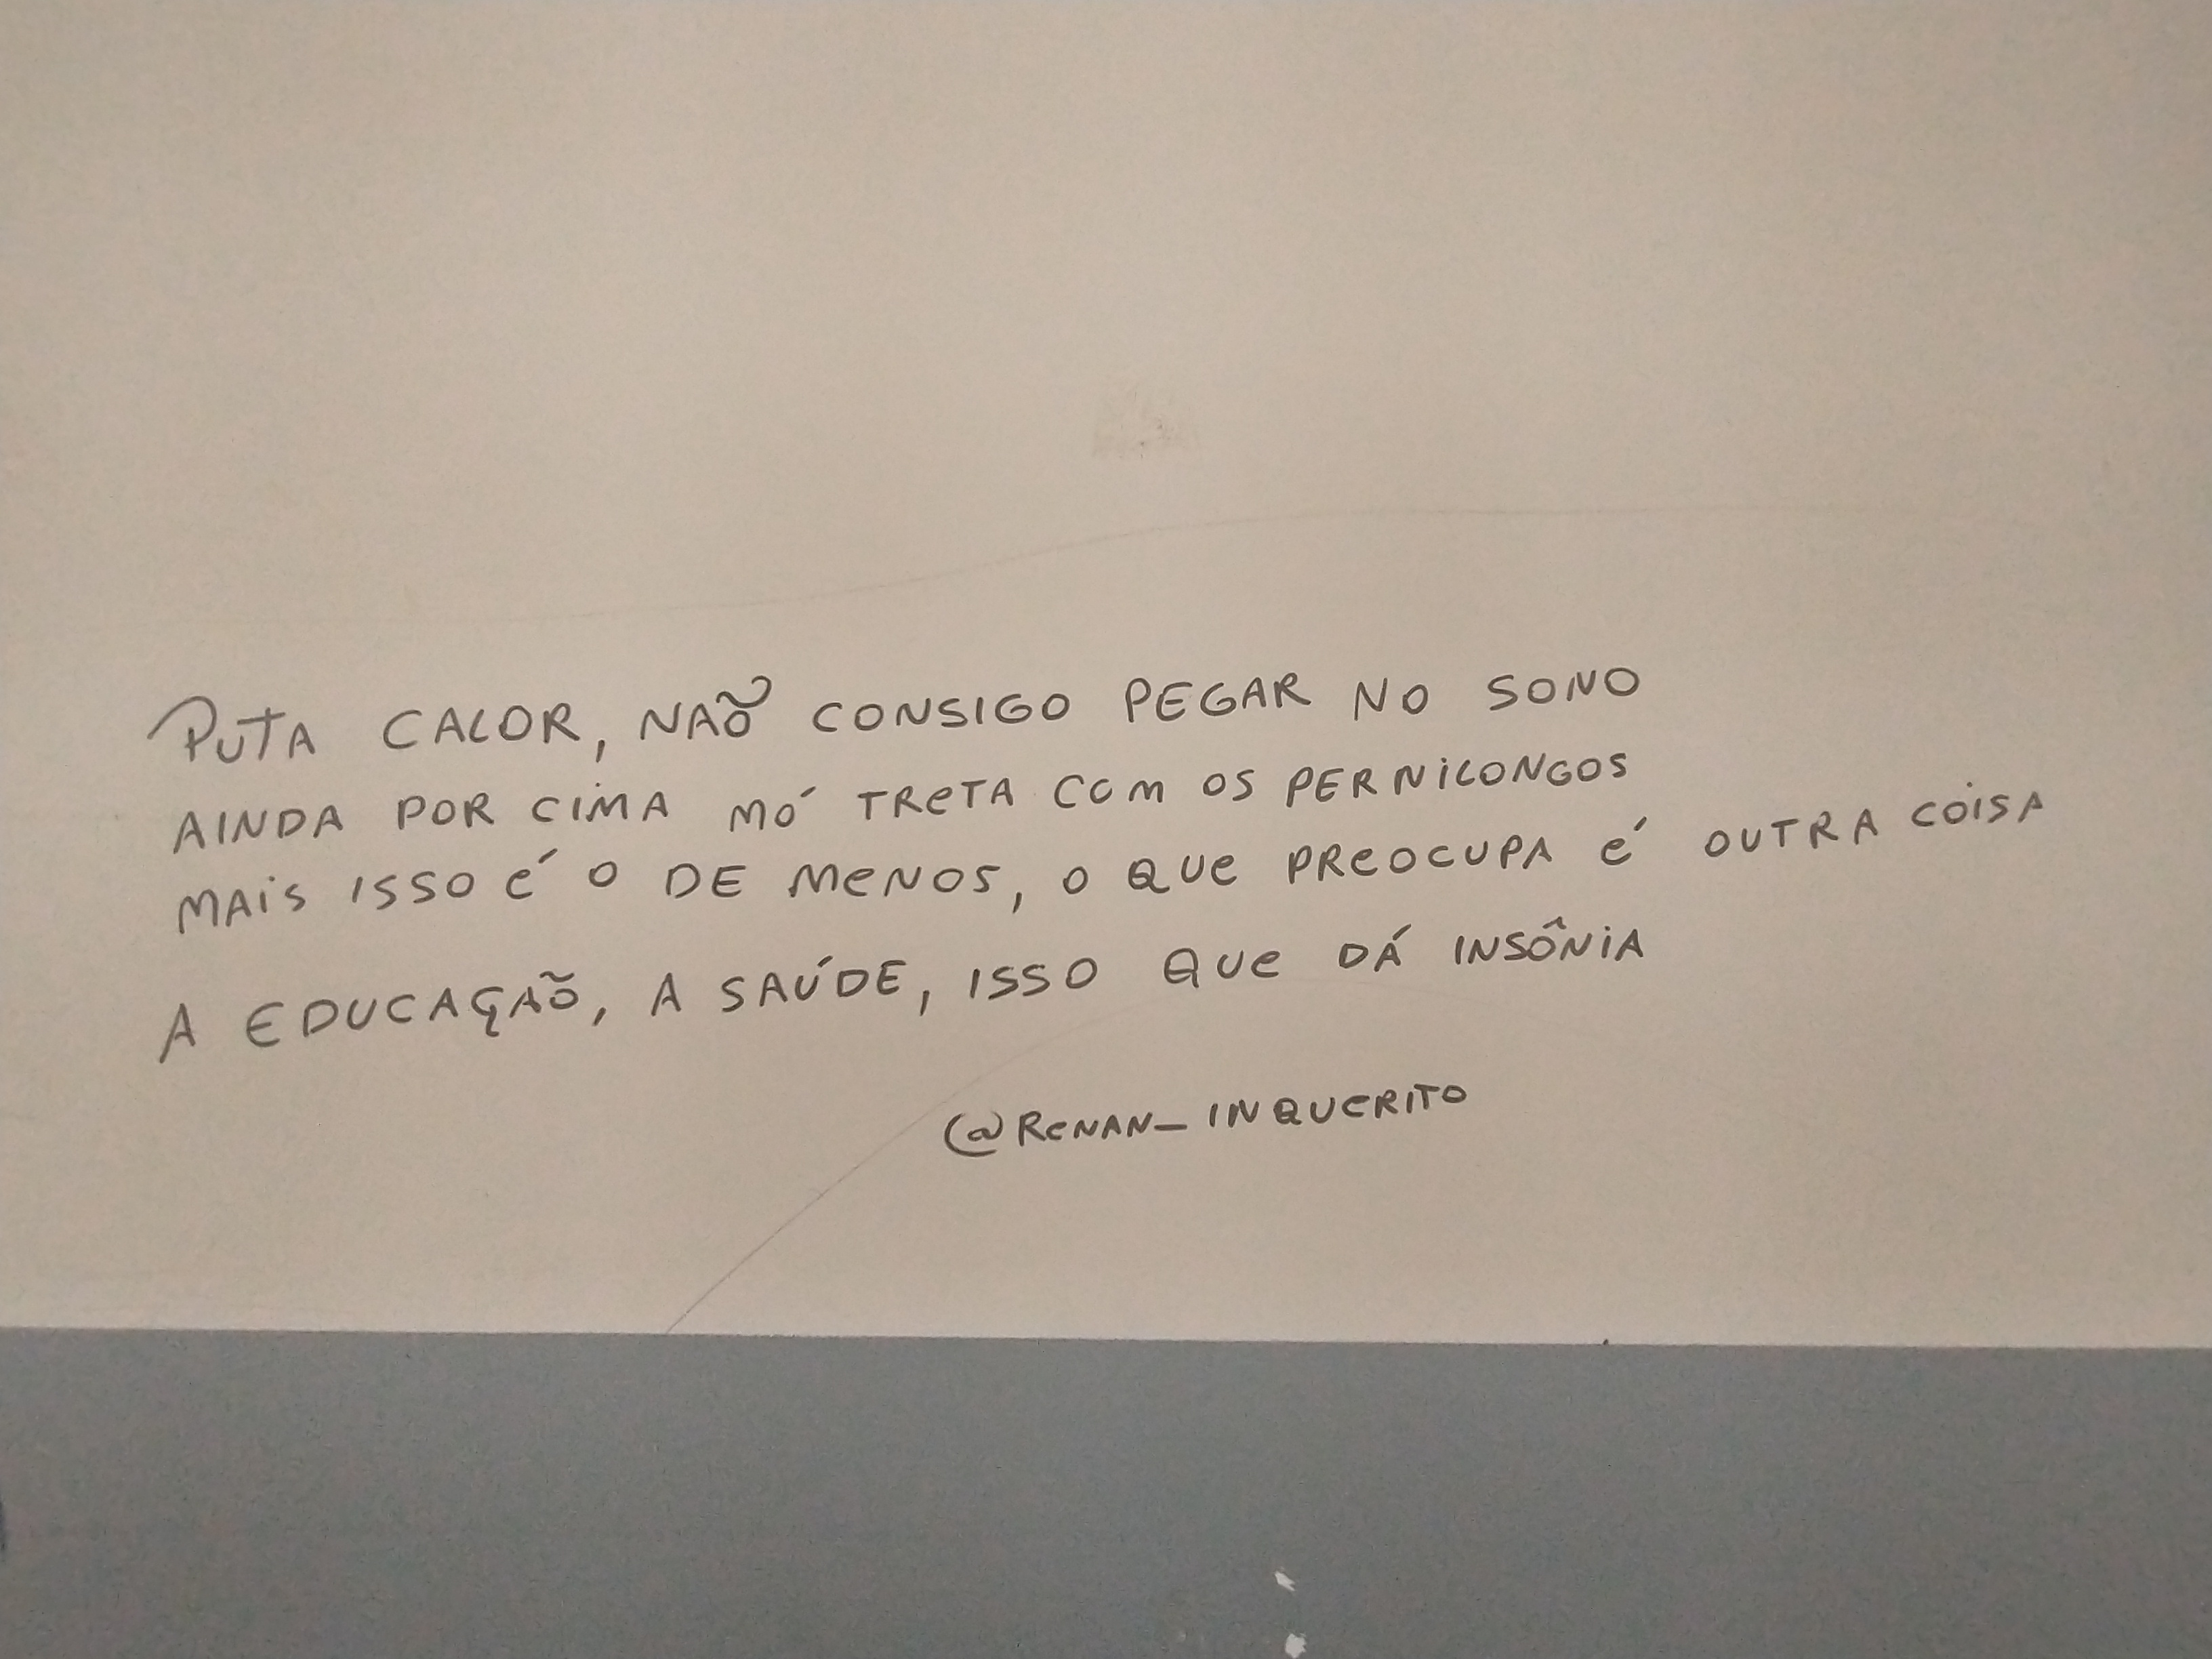 PUTA CALOR, NÃO CONSIGO PEGAR NO SONO
AINDA POR CIMA MÓ TRETA COM OS PERNILONGOS
MAIS ISSO É O DE MENOS, O QUE PREOCUPA É OUTRA COISA
A EDUCAÇÃO, A SAÚDE, ISSO QUE DÁ INSÔNIA
@RENAN_INQUERITO